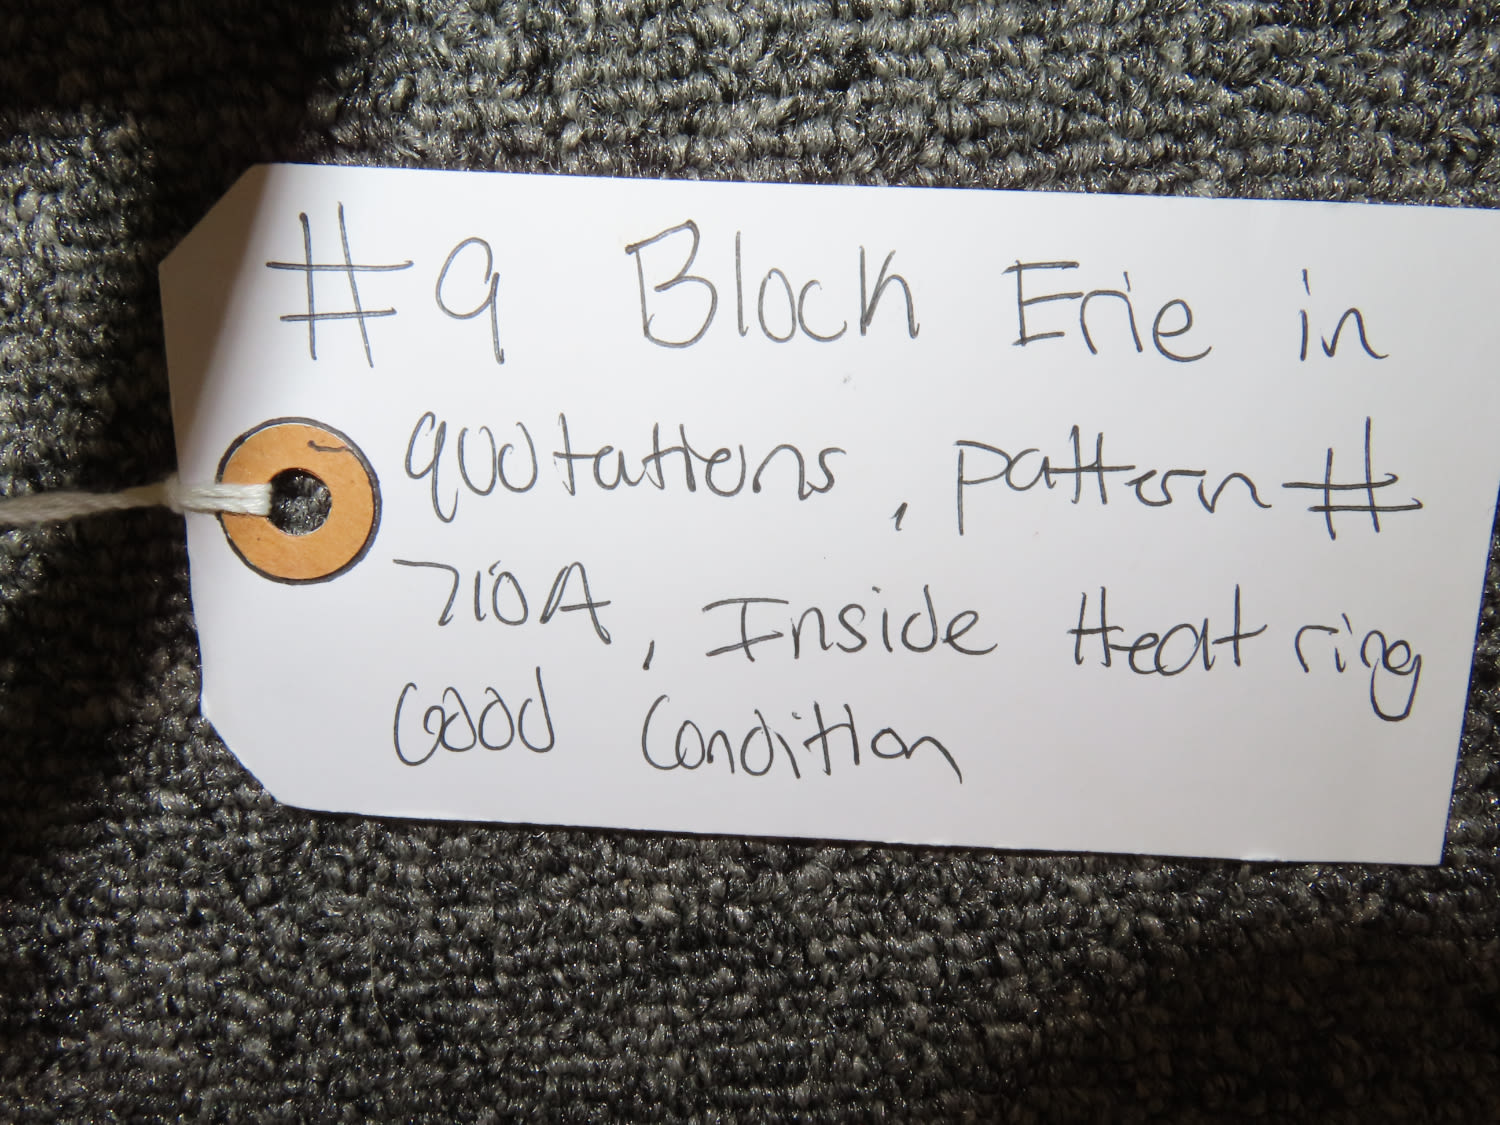 #9 Block Erie in
quotations, pattern #
710A, Inside Heat ring
Good Condition